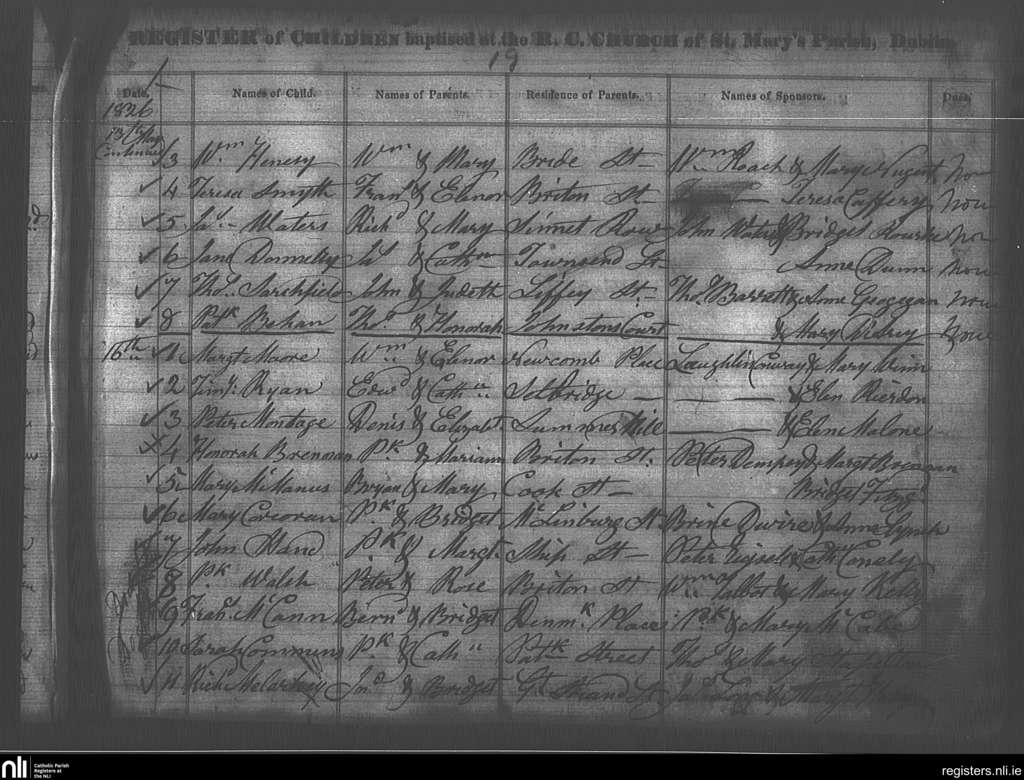 REGISTER of CHILDREN baptised at the R. C. CHURCH of St. Mary's Parish, Dublin
19
Date. Names of Child. Names of Parents. Residence of Parents. Names of Sponsors. Dues.
1826
13th May
Continued 3 Wm Henesy Wm & Mary Bride St Wm Roach & Mary Nugent
4 Teresa Smyth Fran & Elenor Briton St Teresa Caffery
5 Ja. Waters Richd & Mary Sinnet Row John Waters & Bridget Rourke
6 Jane Donnelly & Cathn Townsend St Anne Dunn
7 Thos. Sarchfield John & Judeth Liffey St. Thos Barratt & Anne Geogegan
8 Patk Behan Thos & Honorah Johnstons Court & Mary
16th 1 Margt Moore Wm & Elenor Newcomb Place Laughlin Conway & Mary
2 Timy. Ryan Edwd & Cath Selbridge & Elen Rierdon
3 Peter Montage Denis & Elizabt. Summer Hill & Elen Malone
4 Honorah Brennan Pk & Mariann Briton St. Peter Dempsey & Margt
5 Mary McManus Bryan & Mary Cook St Bridget
6 Mary Corcoran Pk & Bridget McLinburg St Brine Dwire & Anne Lynch
7 John Hand Pk & Margt. Ship St Peter & Cath
8 Pk Walsh Peter & Rose Briton St Wm Talbot & Mary Kelly
9 McCann Bernd & Bridget Denmk Place Pk & Mary McCabe
10 Sarah Commins Pk & Cath Patk Street Thos & Mary
11 Richd McCartney Jno & Bridget Gt Strand St
nli Catholic Parish
Registers at
the NLI
registers.nli.ie